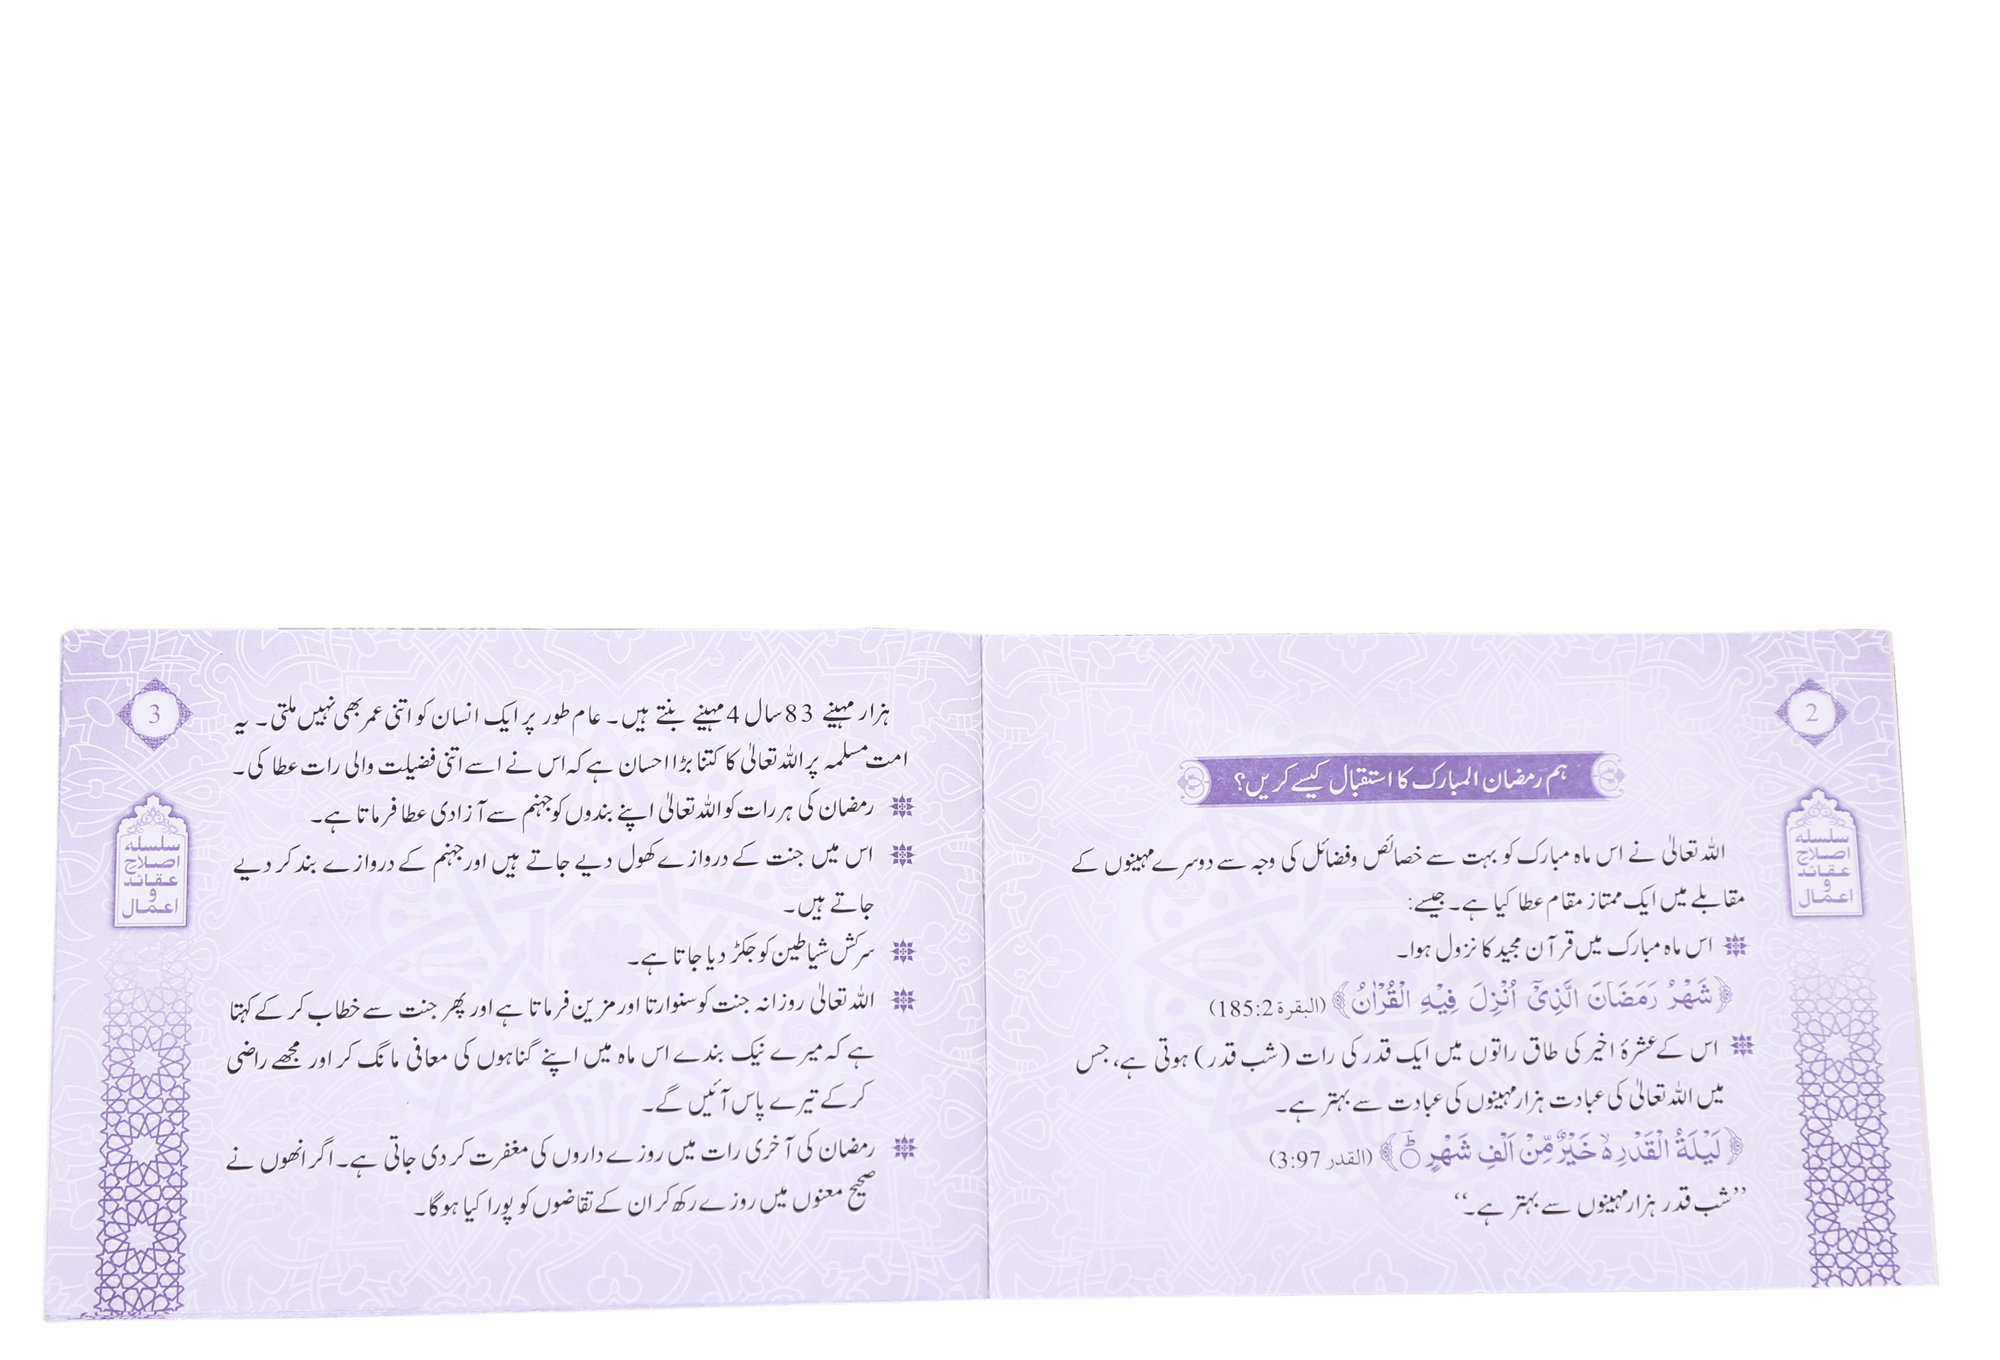 2
سلسلہ
اصلاح
عقائد
و
اعمال
ہم رمضان المبارک کا استقبال کیسے کریں؟
اللہ تعالیٰ نے اس ماہ مبارک کو بہت سے خصائص وفضائل کی وجہ سے دوسرے مہینوں کے
مقابلے میں ایک ممتاز مقام عطا کیا ہے۔ جیسے:
اس ماہ مبارک میں قرآن مجید کا نزول ہوا۔
﴿شَهْرُ رَمَضَانَ الَّذِيْٓ اُنْزِلَ فِيْهِ الْقُرْاٰنُ﴾ (البقرة 185:2)
اس کے عشرۂ اخیر کی طاق راتوں میں ایک قدر کی رات (شب قدر) ہوتی ہے، جس
میں اللہ تعالیٰ کی عبادت ہزار مہینوں کی عبادت سے بہتر ہے۔
﴿لَيْلَةُ الْقَدْرِ ۙ خَيْرٌ مِّنْ اَلْفِ شَهْرٍ ؕ﴾ (القدر 3:97)
’’شب قدر ہزار مہینوں سے بہتر ہے۔‘‘
3
سلسلہ
اصلاح
عقائد
و
اعمال
ہزار مہینے 83 سال 4 مہینے بنتے ہیں۔ عام طور پر ایک انسان کو اتنی عمر بھی نہیں ملتی۔ یہ
امت مسلمہ پر اللہ تعالیٰ کا کتنا بڑا احسان ہے کہ اس نے اسے اتنی فضیلت والی رات عطا کی۔
رمضان کی ہر رات کو اللہ تعالیٰ اپنے بندوں کو جہنم سے آزادی عطا فرماتا ہے۔
اس میں جنت کے دروازے کھول دیے جاتے ہیں اور جہنم کے دروازے بند کر دیے
جاتے ہیں۔
سرکش شیاطین کو جکڑ دیا جاتا ہے۔
اللہ تعالیٰ روزانہ جنت کو سنوارتا اور مزین فرماتا ہے اور پھر جنت سے خطاب کر کے کہتا
ہے کہ میرے نیک بندے اس ماہ میں اپنے گناہوں کی معافی مانگ کر اور مجھے راضی
کر کے تیرے پاس آئیں گے۔
رمضان کی آخری رات میں روزے داروں کی مغفرت کر دی جاتی ہے۔ اگر انھوں نے
صحیح معنوں میں روزے رکھ کر ان کے تقاضوں کو پورا کیا ہوگا۔